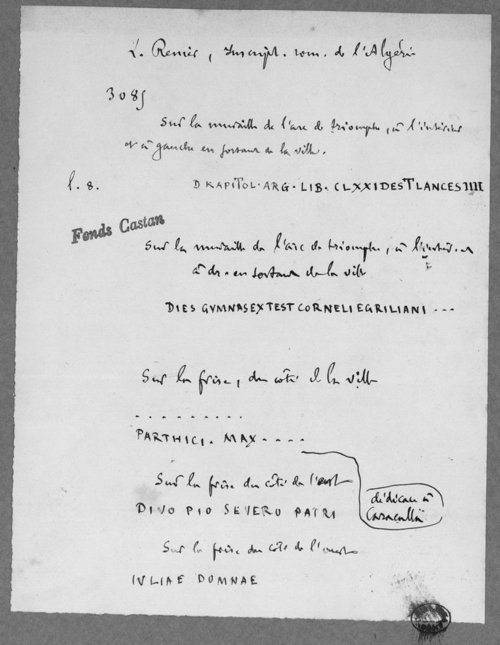 L. Renier, Inscript. rom. de l'Algérie
3085
Sur la muraille de l'arc de triomphe, à l'intérieur
et à gauche en sortant de la ville.
l. 8. D KAPITOL·ARG·LIB·CLXXIDESTLANCESIIII
Fonds Castan
Sur la muraille de l'arc de triomphe, à l'intér. et
à dr. en sortant de la ville
DIES GVMNASEXTESTCORNELIEGRILIANI ---
Sur la frise, du côté de la ville
.........
PARTHICI. MAX----
Sur la frise du côté de l'est
dédicace à
Caracalla
DIVO PIO SEVERO PATRI
Sur la frise du côté de l'ouest
IVLIAE DOMNAE